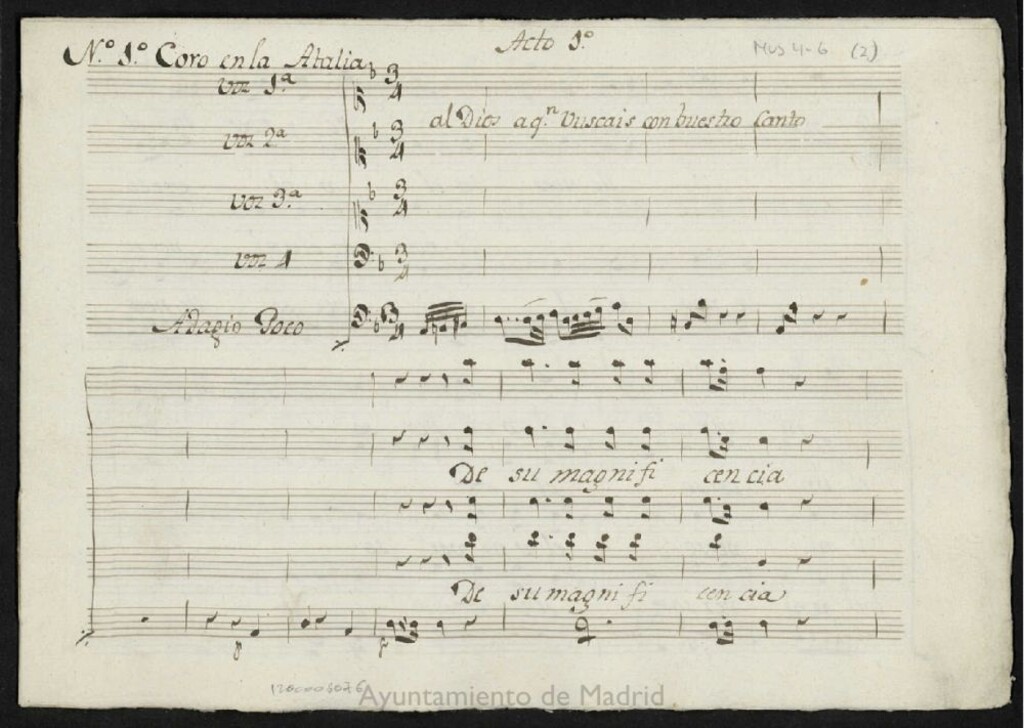 Acto 1.º
Mus 4-6 (2)
N.º 1.º Coro en la Atalia
voz 1.ª
al Dios a q.n Vuscais con buestro Canto
voz 2.ª
voz 3.ª
voz 4
Adagio Poco
De su magnifi cencia
De su magni fi cen cia
p
p
1200006076
Ayuntamiento de Madrid